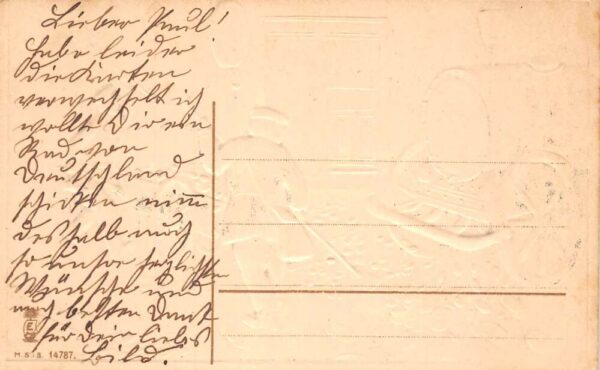 Lieber Paul!
habe leider
die Karten
verwechselt ich
wollte Dir ein
Rad von
Deutschland
schicken nimm
deshalb noch
so unsre herzlichsten
Wünsche und
noch besten Dank
für Dein liebes
Bild.
M.S.i.B. 14787.